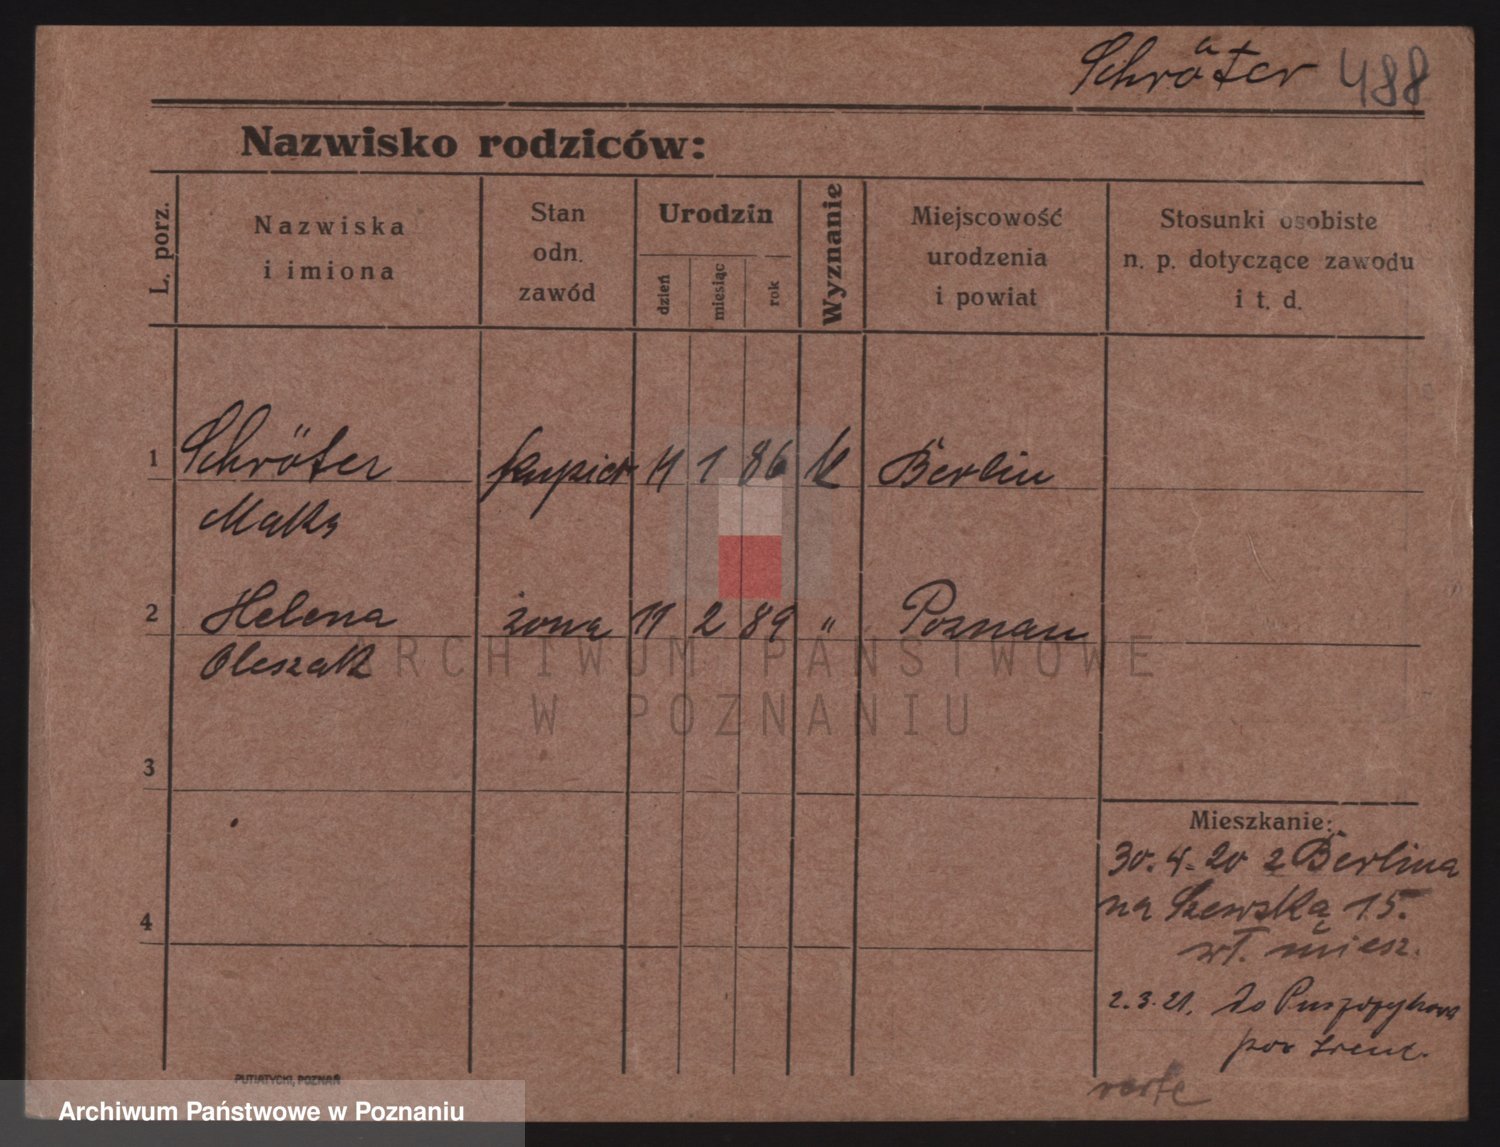 Schröter 488
Nazwisko rodziców:
L. porz.
Nazwiska
i imiona
Stan
odn.
zawód
Urodzin
dzień
miesiąc
rok
Wyznanie
Miejscowość
urodzenia
i powiat
Stosunki osobiste
n. p. dotyczące zawodu
i t. d.
1 Schröter kupiec 11 1 86 k Berlin
Maks
2 Helena żona 11 2 89 " Poznan
Oleszak
ARCHIWUM PAŃSTWOWE
W POZNANIU
3
4
Mieszkanie:
30. 4. 20 z Berlina
na Szewska 15.
wł. miesz.
2. 3. 21. do Puszczykowa
pow
PUTIATYCKI, POZNAŃ
Archiwum Państwowe w Poznaniu